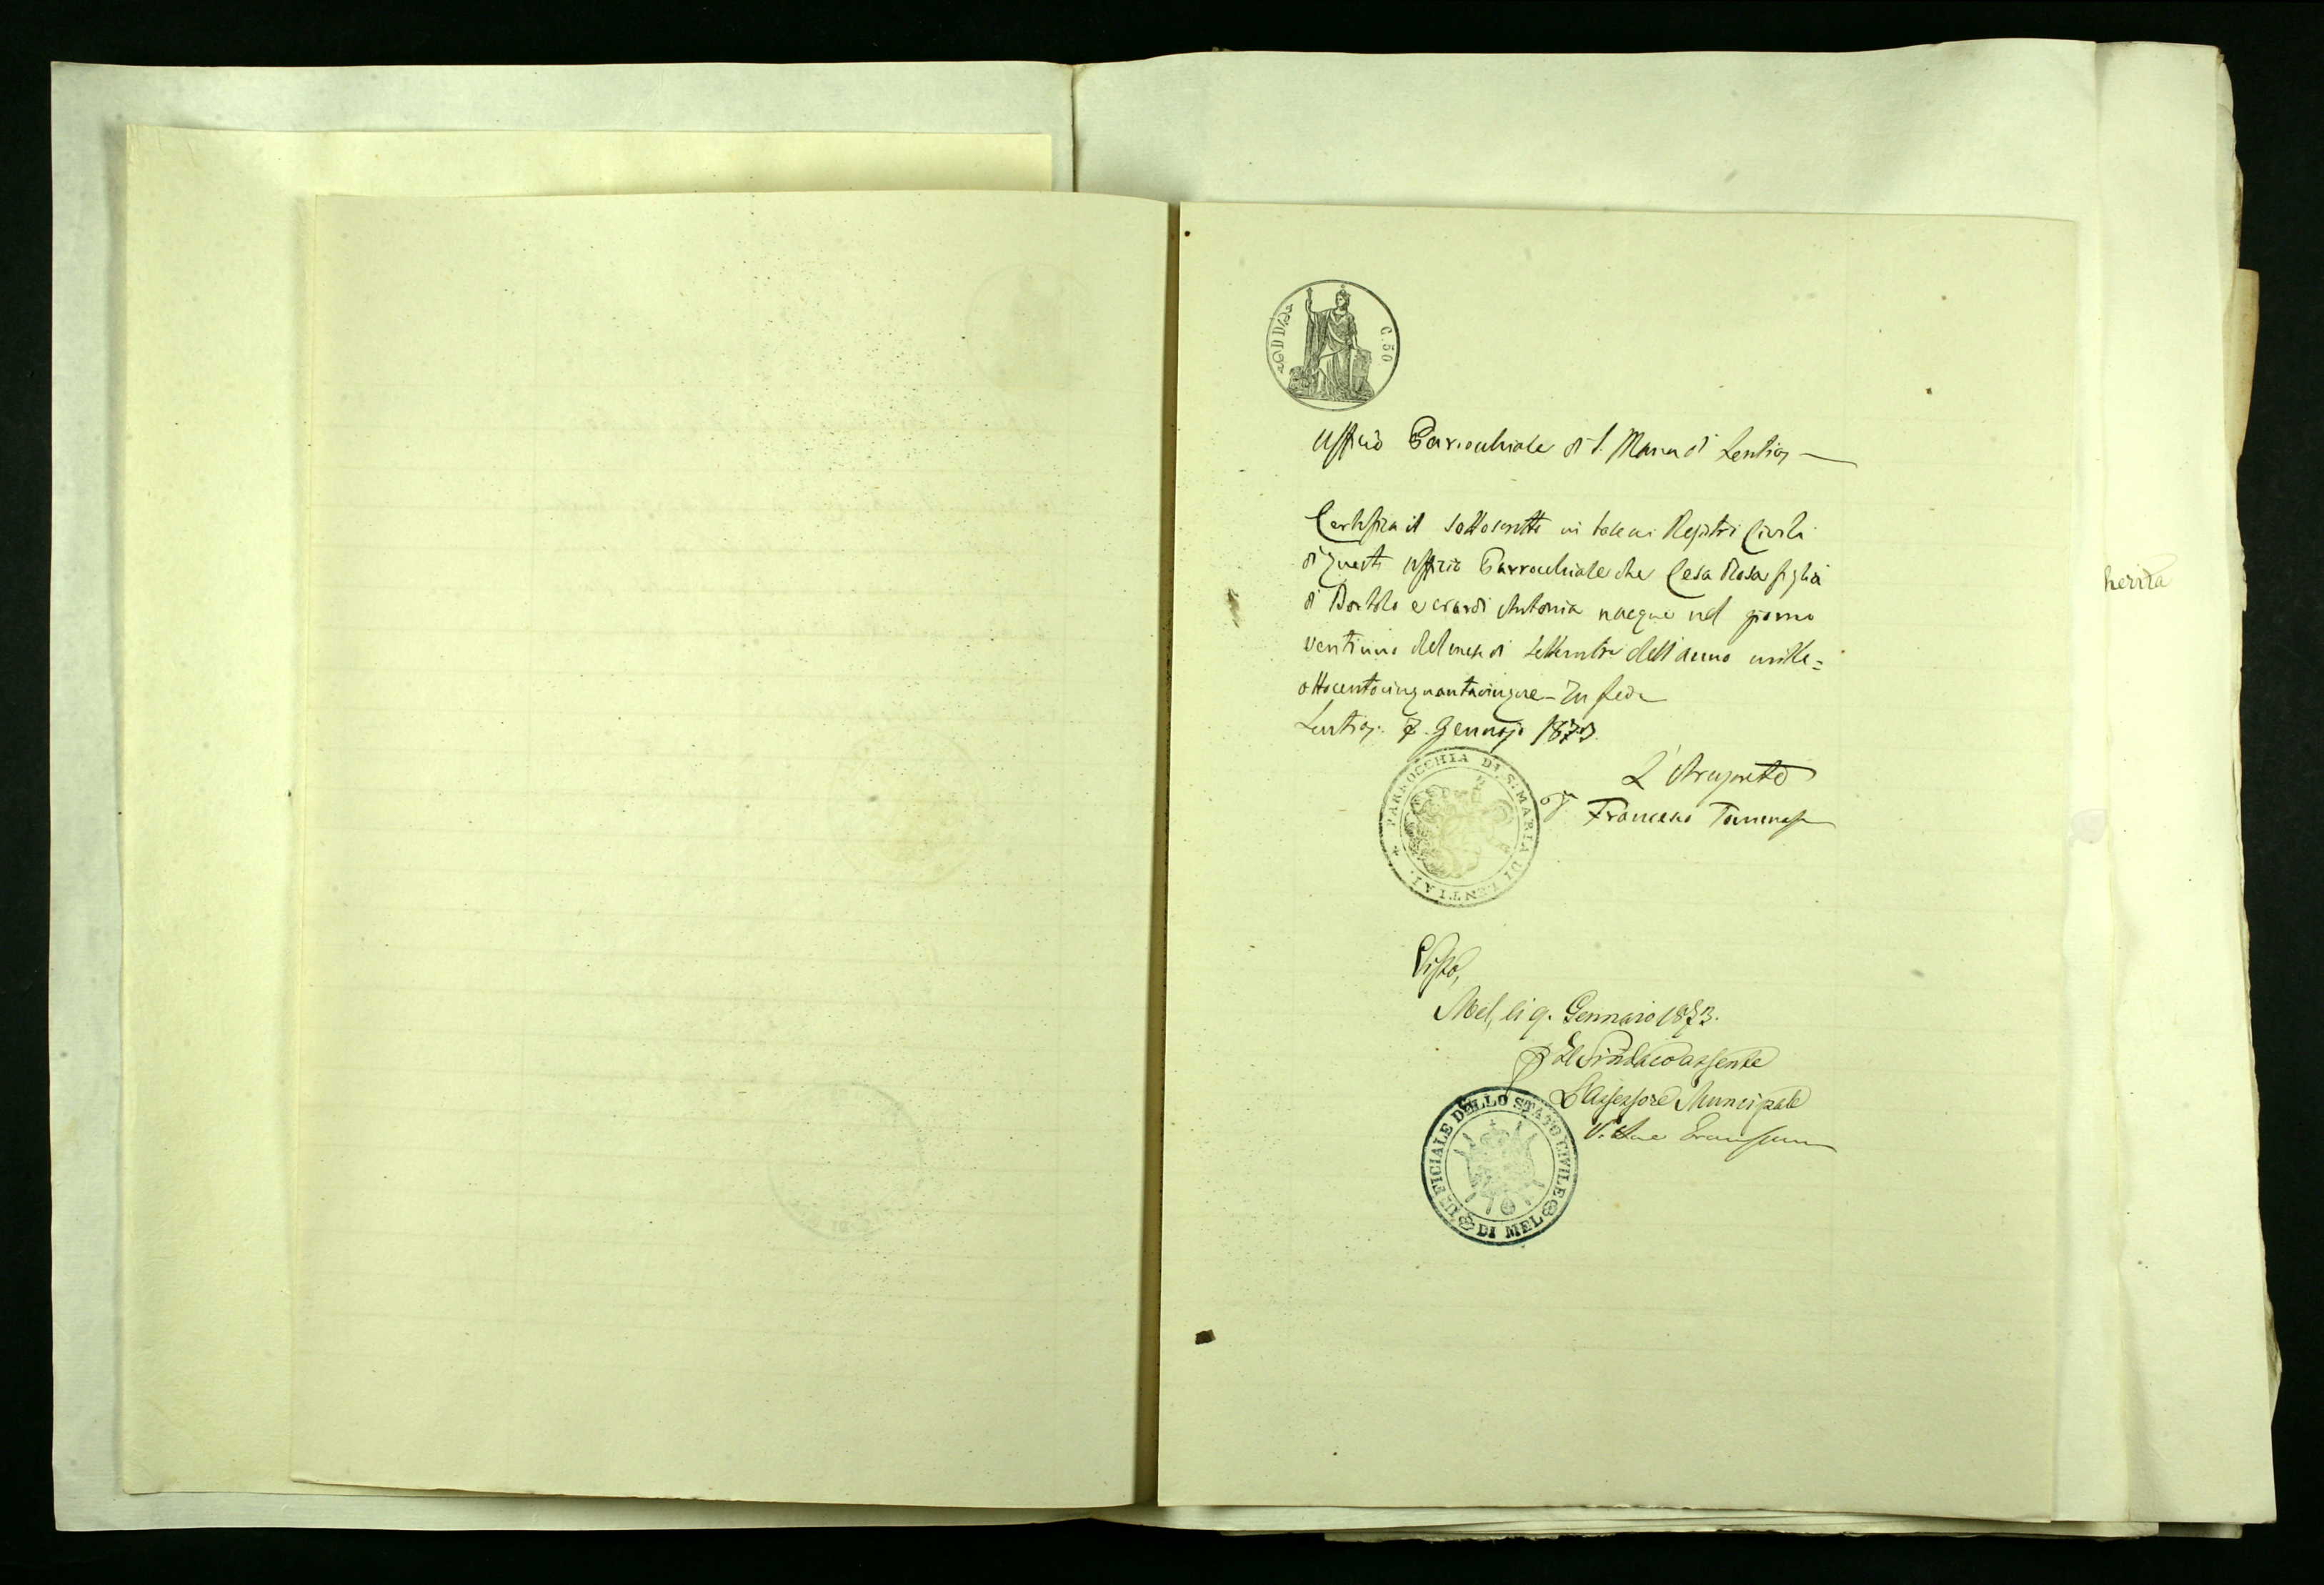 C. 50
Uffizio Parrocchiale di S. Maria di Lentiaj
Certifica il sottoscritto in base ai Registri Civili
di questo Uffizio Parrocchiale che Cesa Rosa figlia
di Bortolo e Antonia nacque nel giorno
ventiuno del mese di Settembre dell'anno mille=
ottocentocinquantacinque - In fede
Lentiaj. 7. Gennajo 1873.
L'Arciprete
Francesco
PARROCCHIA DI S. MARIA DI LENTIAI.
Visto,
Mel, li 9. Gennaio 1873.
Il Sindaco assente
L'Assessore Municipale
UFFICIALE DELLO STATO CIVILE
DI MEL